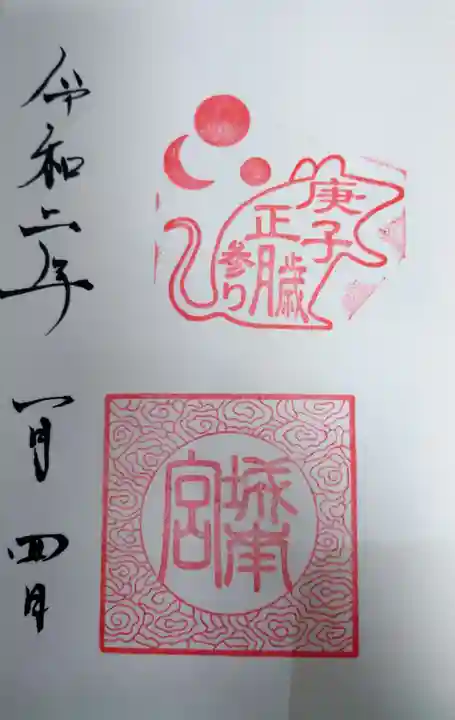 庚子歳
正月
参り
城南宮
令和二年 一月 四日